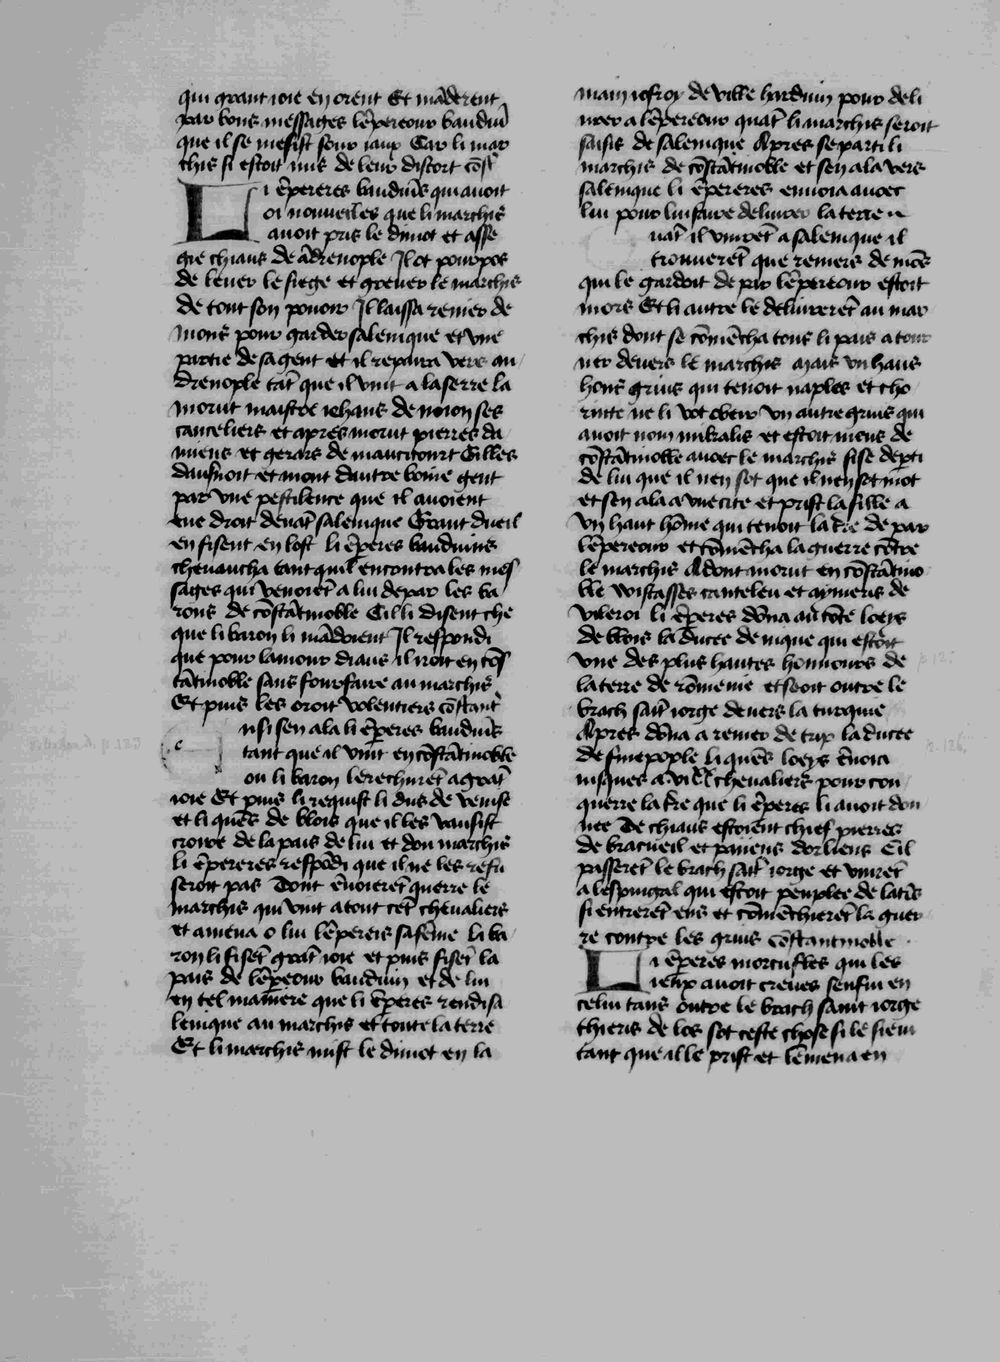 qui grant ioie en orent Et mãderent
par bons messages lẽpereour bauduĩ
que il se mesist seur iaux Car li mar
chis si estoit mis de leur discort cõst
Li ẽpereres bauduĩs qui auoit
oi nouuelles que li marchis
auoit pris le dimot et asse
gie chiaus de ãdrenople Il ot pourpos
de leuer le siege et greuer le marchis
de tout son pouoir Il laissa renier de
mons pour garder salenique et vne
partie de sa gent et il repaira vers an
drenople tãt que il vint a la serre la
morut maistre iehans de noion ses
canceliers et apres morut pierres da
miens et gerars de mancicourt Gilles
daufnoit et mont dautre bõne gent
par vne pestilence que il auoient
eue droit deuãt salenique Grant dueil
en fisent en lost li ẽperes bauduins
cheuaucha tant quil encontra les mes
sages qui venoiẽt a lui de par les ba
rons de cõstãtinoble Cil li disent che
que li baron li mãdoient Il respondi
que pour lamour diaus il iroit en cõs
tãtinoble sans fourfaire au marchis
Et puis les oroit volentiers cõstant
nsi sen ala li ẽperes bauduĩs
tant que il vint en cõstãtinoble
ou li baron le rechurẽt a grãt
ioie Et puis li requist li dus de venise
et li quẽs de blois que il les vausist
croire de la pais de lui et dou marchis
li ẽpereres respõdi que il ne les refu
seroit pas Dont ẽuoierẽt querre le
marchis qui vint a tout cẽt cheualiers
et amena o lui lẽpereis sa fẽme li ba
ron li fisẽt grãt ioie et puis fisẽt la
pais de lẽpeour bauduin et de lui
en tel maniere que li ẽperes rendi sa
lenique au marchis et toute la terre
Et li marchis mist le dimot en la
main iofroy de ville harduin pour deli
urer a lẽpereour quãt li marchis seroit
saisis de salenique Apres se parti li
marchis de cõstãtinoble et sen ala vers
salenique li ẽpereres enuoia auoec
lui pour lui faire deliurer la terre
uãt il vinrẽt a salenique il
trouuerẽt que reniers de mõs
qui le gardoit de par lẽpereour estoit
mors Et li autre le deliurerẽt au mar
chis dont se cõmẽcha tous li pais a tour
ner deuers le marchis Mais vn haus
hons grius qui tenoit naples et cho
rinte ne li vot obeir vn autre grius qui
auoit nom mikalis et estoit mens de
cõstãtinoble auoec le marchis si se depti
de lui que il nen sot mot
et sen ala a vne cite et prist la fille a
vn haut hõme qui tenoit la tre de par
lẽpereour et cõmẽcha la guerre cõtre
le marchis Adont morut en cõstãtino
ble wistasses canteleu et aymeris de
vileroi li ẽperes dõna au cõte loeys
de blois la ducee de nique qui estoit
vne des plus hautes honnours de
la terre de rõmenie et seoit outre le
brach saĩt iorge deuers la turquie
Apres dõna a renier de trip la ducee
de finepople li quẽs loeys ẽuoia
cheualiers pour con
querre la tre que li ẽperes li auoit don
nee De chiaus estoient chief pierres
de bracueil et paiiens dorliens Cil
passerẽt le brach saĩt iorge et vinrẽt
a lespingal qui estoit peuplee de latis
si entrerẽt ens et cõmẽchierẽt la guer
re contre les grius cõstantinoble
Li ẽperes morcufles qui les
ieux auoit creues senfui en
celui tans outre le brach saint iorge
thieris de los sot ceste chose si le siem
tant que il le prist et lẽmena en